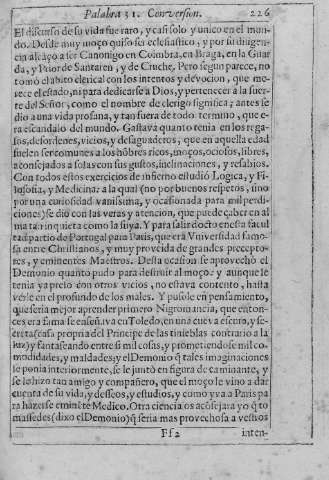 Palabra 31. Conversion. 226
El discurso de su vida fue raro, y casi solo y unico en el mun-
do. Desde muy moço quiso ser eclesiastico, y por su diligen-
cia alcãçò a ser Canonigo en Coimbra, en Braga, en la Guar
da, y Prior de Santaren, y de Cruche. Pero segun parece, no
tomò el abito clerical con los intentos y devocion, que me-
rece el estado, ni para dedicarse a Dios, y pertenecer a la suer-
te del Señor, como el nombre de clerigo significa; antes se
dio a una vida profana, y tan fuera de todo termino, que e-
ra escandalo del mundo. Gastava quanto tenia en los rega-
los, desordenes, vicios, y desaguaderos, que en aquella edad
suelen ser comunes a los hõbres ricos, moços, ociosos, libres,
aconsejados a solas con sus gustos, inclinaciones, y resabios.
Con todos estos exercicios de infierno estudiò Logica, y Fi-
losofia, y Medicina: a la qual (no por buenos respetos, sino
por una curiosidad vanissima, y ocasionada para mil perdi-
ciones) se diò con las veras y atencion, que puede caber en al
ma tan inquieta como la suya. Y para salir docto en esta facul
tad partiò de Portugal para Paris, que era Vniversidad famo-
sa entre Christianos, y muy proveida de grandes precepto-
res, y eminentes Maestros. Desta ocasion se aprovechò el
Demonio quanto pudo para destruir al moço: y aunque le
tenia ya preso con otros vicios, no estava contento, hasta
verle en el profundo de los males. Y pusole en pensamiento,
que seria mejor aprender primero Nigromancia, que enton-
ces era fama se enseñava en Toledo, en una cueva escura, y se-
creta (casa propria del Principe de las tinieblas contrario a la
luz) y fantaseando entre si mil cosas, y prometiendose mil co-
modidades, y maldades; y el Demonio q̃ tales imaginaciones
le ponia interiormente, se le juntò en figura de caminante, y
se lo hizo tan amigo y compañero, que el moço le vino a dar
cuenta de su vida, y desseos, y estudios, y como yva a Paris pa
ra hazerse eminẽte Medico. Otra ciencia os acõsejara yo q̃ to
massedes (dixo el Demonio) q̃ seria mas provechosa a vestros
Ff2 inten-